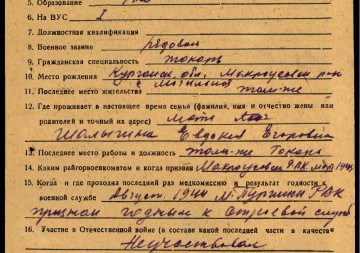 5. Образование
6. На ВУС I
7. Должностная квалификация
8. Военное звание рядовой
9. Гражданская специальность токарь
10. Место рождения Курганск. обл. Макроусовск. р-н
11. Последнее место жительства там-же
12. Где проживает в настоящее время семья (фамилия, имя и отчество жены или
родителей и точный их адрес) Мать
Шалыгина Евдокия Егоровна
13. Последнее место работы и должность там-же Токарь
14. Каким райгорвоенкоматом и когда призван
15. Когда и где проходил последний раз медкомиссию и результат годности к
военной службе Август 1944
признан годным к строевой службе
16. Участие в Отечественной войне (в составе какой последней части в качестве
Не участвовал